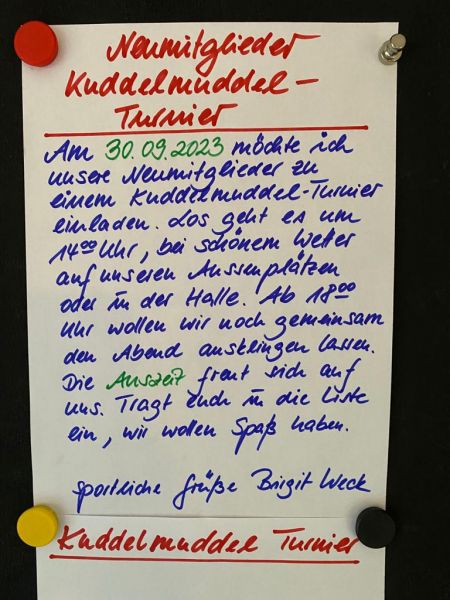 Neumitglieder
Kuddelmuddel-
Turnier
Am 30.09.2023 möchte ich
unsere Neumitglieder zu
einem Kuddelmuddel-Turnier
einladen. Los geht es um
14⁰⁰ Uhr, bei schönem Wetter
auf unseren Aussenplätzen
oder in der Halle. Ab 18⁰⁰
Uhr wollen wir noch gemeinsam
den Abend ausklingen lassen.
Die Auszeit freut sich auf
uns. Tragt euch in die Liste
ein, wir wollen Spaß haben.
sportliche Grüße Birgit Weck
Kuddelmuddel Turnier